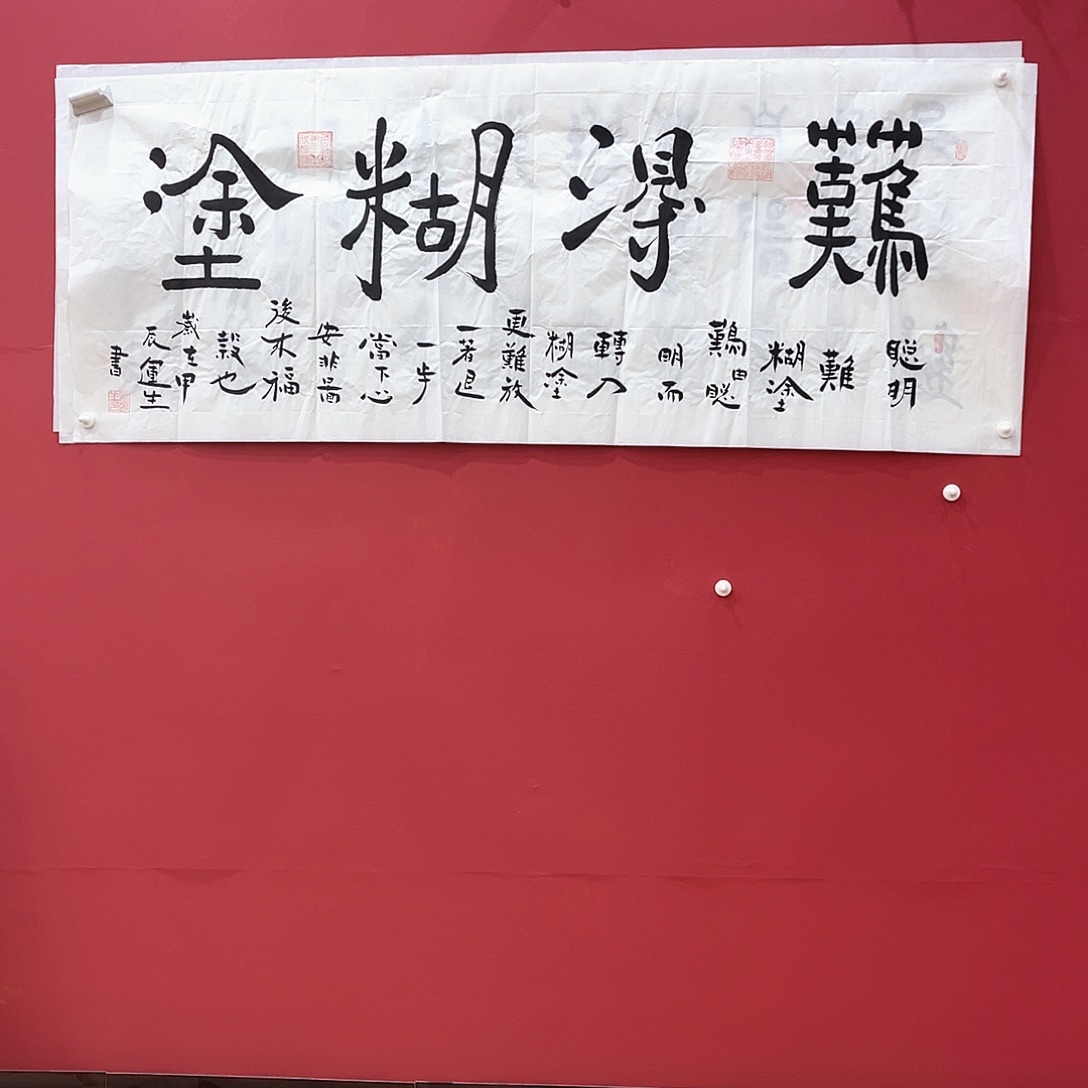 難得糊塗
聰明
難
糊塗
難由聰
明而
轉入
糊塗
更難放
一著退
一步
當下心
安非圖
後來福
報也
歲在甲
辰運生
書